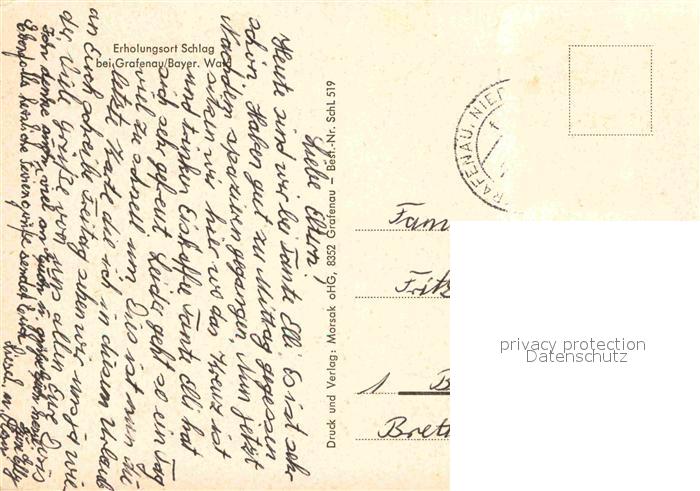 Erholungsort Schlag
bei Grafenau/Bayer. Wald
Liebe Eltern!
Heute sind wir bei Tante Elli. Es ist sehr
schön. Haben gut zu Mittag gegessen
spazieren gegangen. Nun jetzt
sitzen wir hier wo das Kreuz ist
und trinken Eiskaffee Tante Elli hat
sich sehr gefreut Leider geht so ein Tag
viel zu schnell um. Dies ist nun die
letzte Karte die ich in diesem Urlaub
an Euch schreibe. Freitag sehen wir uns ja wie
der Viele Grüße von uns allen Eure Doris
Ebenfalls herzliche sendet Euch
Druck und Verlag: Morsak oHG, 8352 Grafenau — Best.-Nr. SchL 519
GRAFENAU, NIED
Fam
Fritz
1 B
Bret
privacy protection
Datenschutz